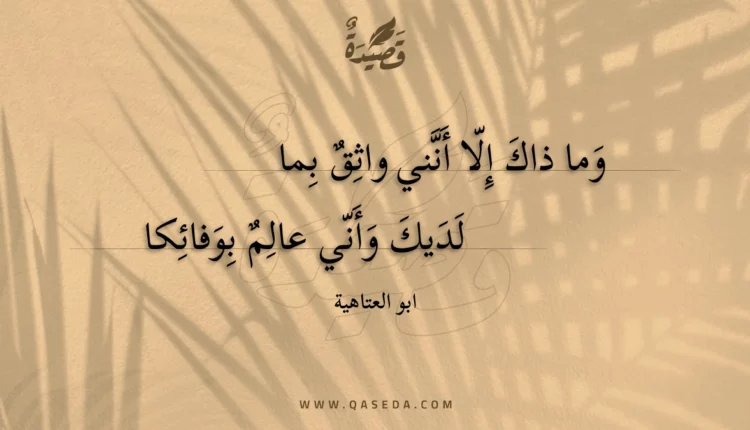 قَصِيدَةٌ
وَما ذاكَ إِلّا أَنَّني واثِقٌ بِما
لَدَيكَ وَأَنّي عالِمٌ بِوَفائِكا
ابو العتاهية
WWW.QASEDA.COM